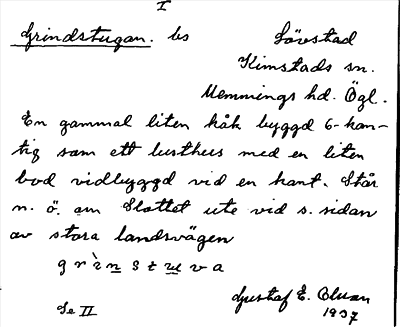 I
Grindstugan. bs Lövstad
Kimstads sn.
Memmings hd. Ögl.
En gammal liten kåk byggd 6-kan-
tig som ett lusthus med en liten
bod vidbyggd vid en kant. Står
n. ö. om Slottet ute vid s. sidan
av stora landsvägen
grìnstuva
Se II Gustaf E.
1937